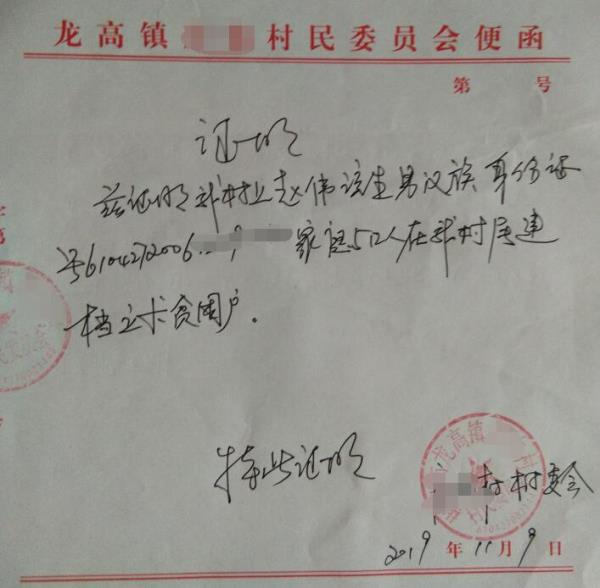 龙高镇 村民委员会便函
第 号
证明
兹证明我村 赵伟该生男汉族身份证
号6104272006 家 5口人在我村属建
档立卡贫困户.
特此证明
龙高镇
村村委会
2019年11月9日